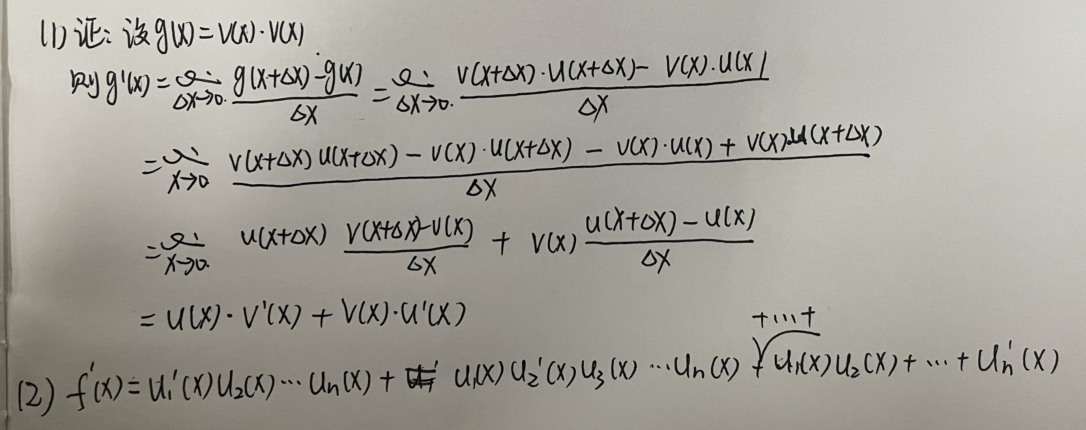 (1) 证: 设 g(x) = V(x)·V(x)
则 g'(x) = lim Δx→0. g(x+Δx)-g(x) / Δx = lim Δx→0. V(x+Δx)·U(x+Δx) - V(x).U(x) / Δx
= lim x→0 V(x+Δx) U(x+Δx) - V(x)·U(x+Δx) - V(x)·U(x) + V(x).U(x+Δx) / Δx
= lim x→0. U(x+Δx) V(x+Δx)-V(x) / Δx + V(x) U(x+Δx) - U(x) / Δx
= U(x)·V'(x) + V(x)·U'(x)
+...+
(2) f'(x) = U₁'(x) U₂(x) ... Uₙ(x) + U₁(x) U₂'(x) U₃(x) ... Uₙ(x) + U₁(x) U₂(x) + ... + Uₙ'(x)